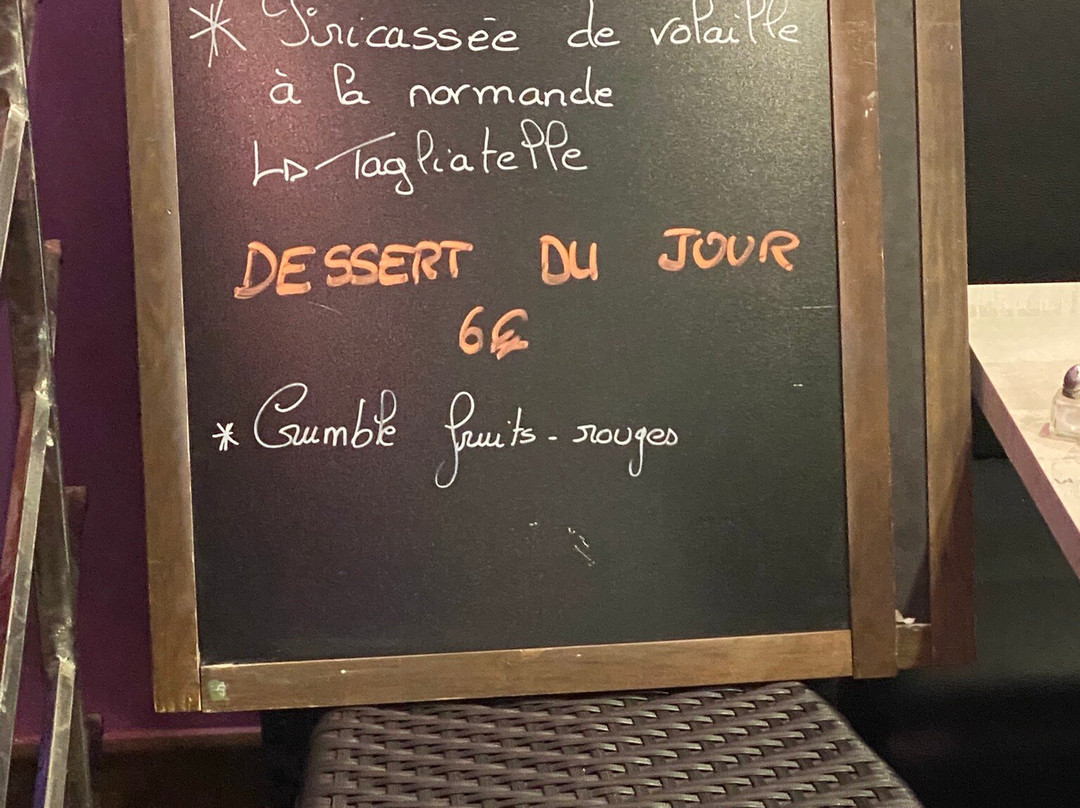 * Fricassée de volaille
à la normande
↳ Tagliatelle
DESSERT DU JOUR
6€
* Crumble fruits-rouges